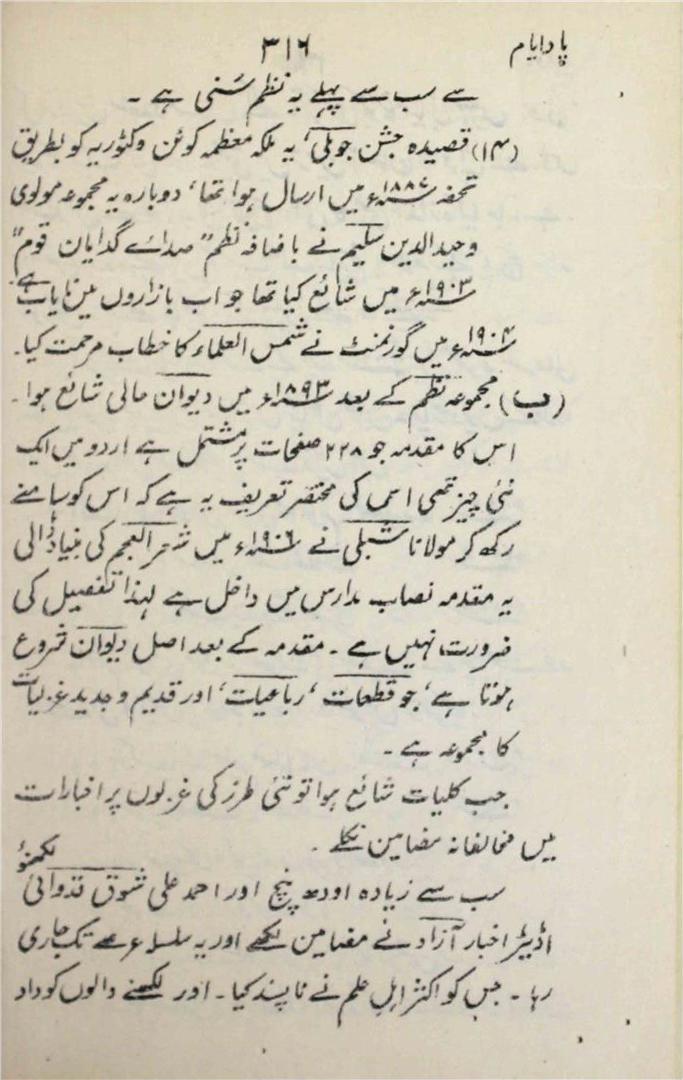 یادایام
۳۱۶
سے سب سے پہلے یہ نظم سُنی ہے ۔
(۱۴) قصیدہ جشن جوبلی، یہ ملکہ معظمہ کوئن وکٹوریہ کو بطریق
تحفہ ۱۸۸۷ء میں ارسال ہوا تھا، دوبارہ یہ مجموعہ مولوی
وحیدالدین سلیم نے باضافہ نظم "صدائے گدایان قوم"
۱۹۰۳ء میں شائع کیا تھا جو اب بازاروں میں نایاب ہے۔
۱۹۰۴ء میں گورنمنٹ نے شمس العلماء کا خطاب مرحمت کیا۔
(ب) مجموعہ نظم کے بعد ۱۸۹۳ء میں دیوان حالی شائع ہوا۔
اس کا مقدمہ جو ۲۲۸ صفحات پر مشتمل ہے اردو میں ایک
نئی چیز تھی اس کی مختصر تعریف یہ ہے کہ اس کو سامنے
رکھ کر مولانا شبلی نے ۱۹۰۶ء میں شعرالعجم کی بنیاد ڈالی
یہ مقدمہ نصاب مدارس میں داخل ہے لہذا تفصیل کی
ضرورت نہیں ہے ۔ مقدمہ کے بعد اصل دیوان شروع
ہوتا ہے، جو قطعات، رباعیات، اور قدیم و جدید غزلیات
کا مجموعہ ہے ۔
جب کلیات شائع ہوا تو نئی طرز کی غزلوں پر اخبارات
میں مخالفانہ مضامین نکلے ۔
سب سے زیادہ اودھ پنچ اور احمد علی شوق قدوائی لکھنؤ
اڈیٹر اخبار آزاد نے مضامین لکھے اور یہ سلسلہ تک جاری
رہا ۔ جس کو اکثر اہل علم نے ناپسند کیا ۔ اور لکھنے والوں کو داد